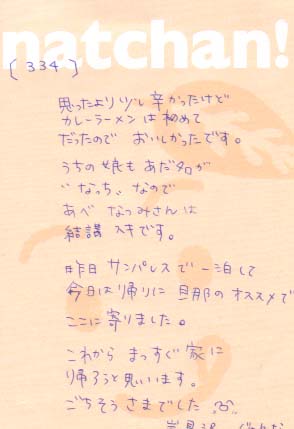 natchan!
[334]
思ったより少し辛かったけど
カレーラーメンは初めて
だったので おいしかったです。
うちの娘も あだ名が
"なっち"なので
あべ なつみさんは
結講 スキです。
昨日 サンパレスで 一泊して
今日は帰りに 旦那のオススメで
ここに寄りました。
これから まっすぐ 家に
帰ろうと思います。
ごちそうさまでした
岩見沢